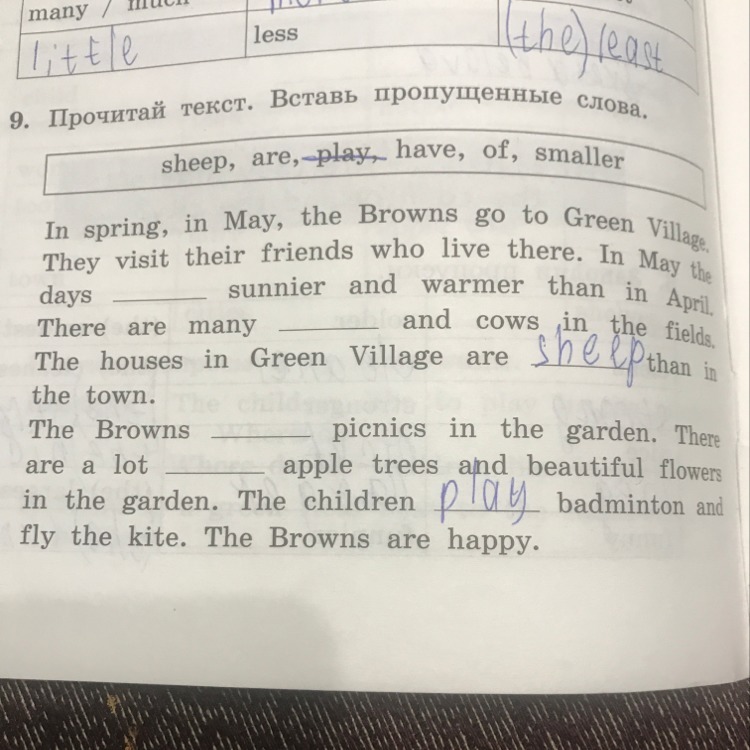 many / much
little less (the) least
9. Прочитай текст. Вставь пропущенные слова.
sheep, are, play, have, of, smaller
In spring, in May, the Browns go to Green Village.
They visit their friends who live there. In May the
days ______ sunnier and warmer than in April.
There are many ______ and cows in the fields.
The houses in Green Village are sheep than in
the town.
The Browns ______ picnics in the garden. There
are a lot ______ apple trees and beautiful flowers
in the garden. The children play badminton and
fly the kite. The Browns are happy.